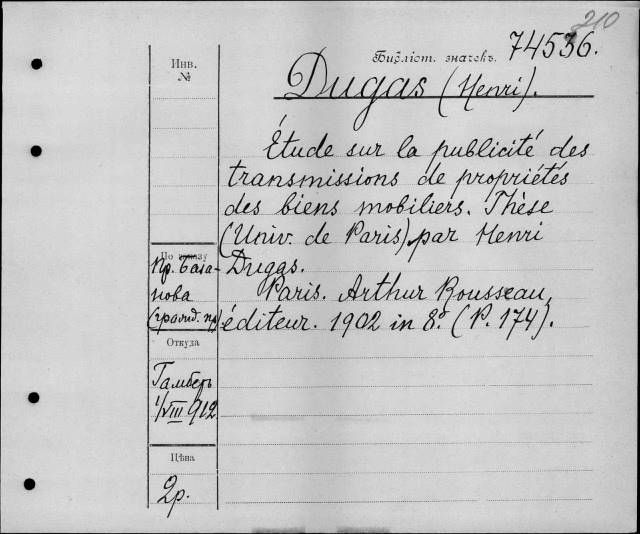 210
Библіот. значекъ. 74536.
Инв.
№
Dugas (Henri).
Étude sur la publicité des
transmissions de propriétés
des biens mobiliers. Thèse
(Univ. de Paris) par Henri
Dugas.
Paris. Arthur Rousseau,
éditeur. 1902 in 8.° (P. 174).
По заказу
Пр. База-
нова
(гражд. пр)
Откуда
Гамберъ
1/VIII 912
Цѣна
2р.